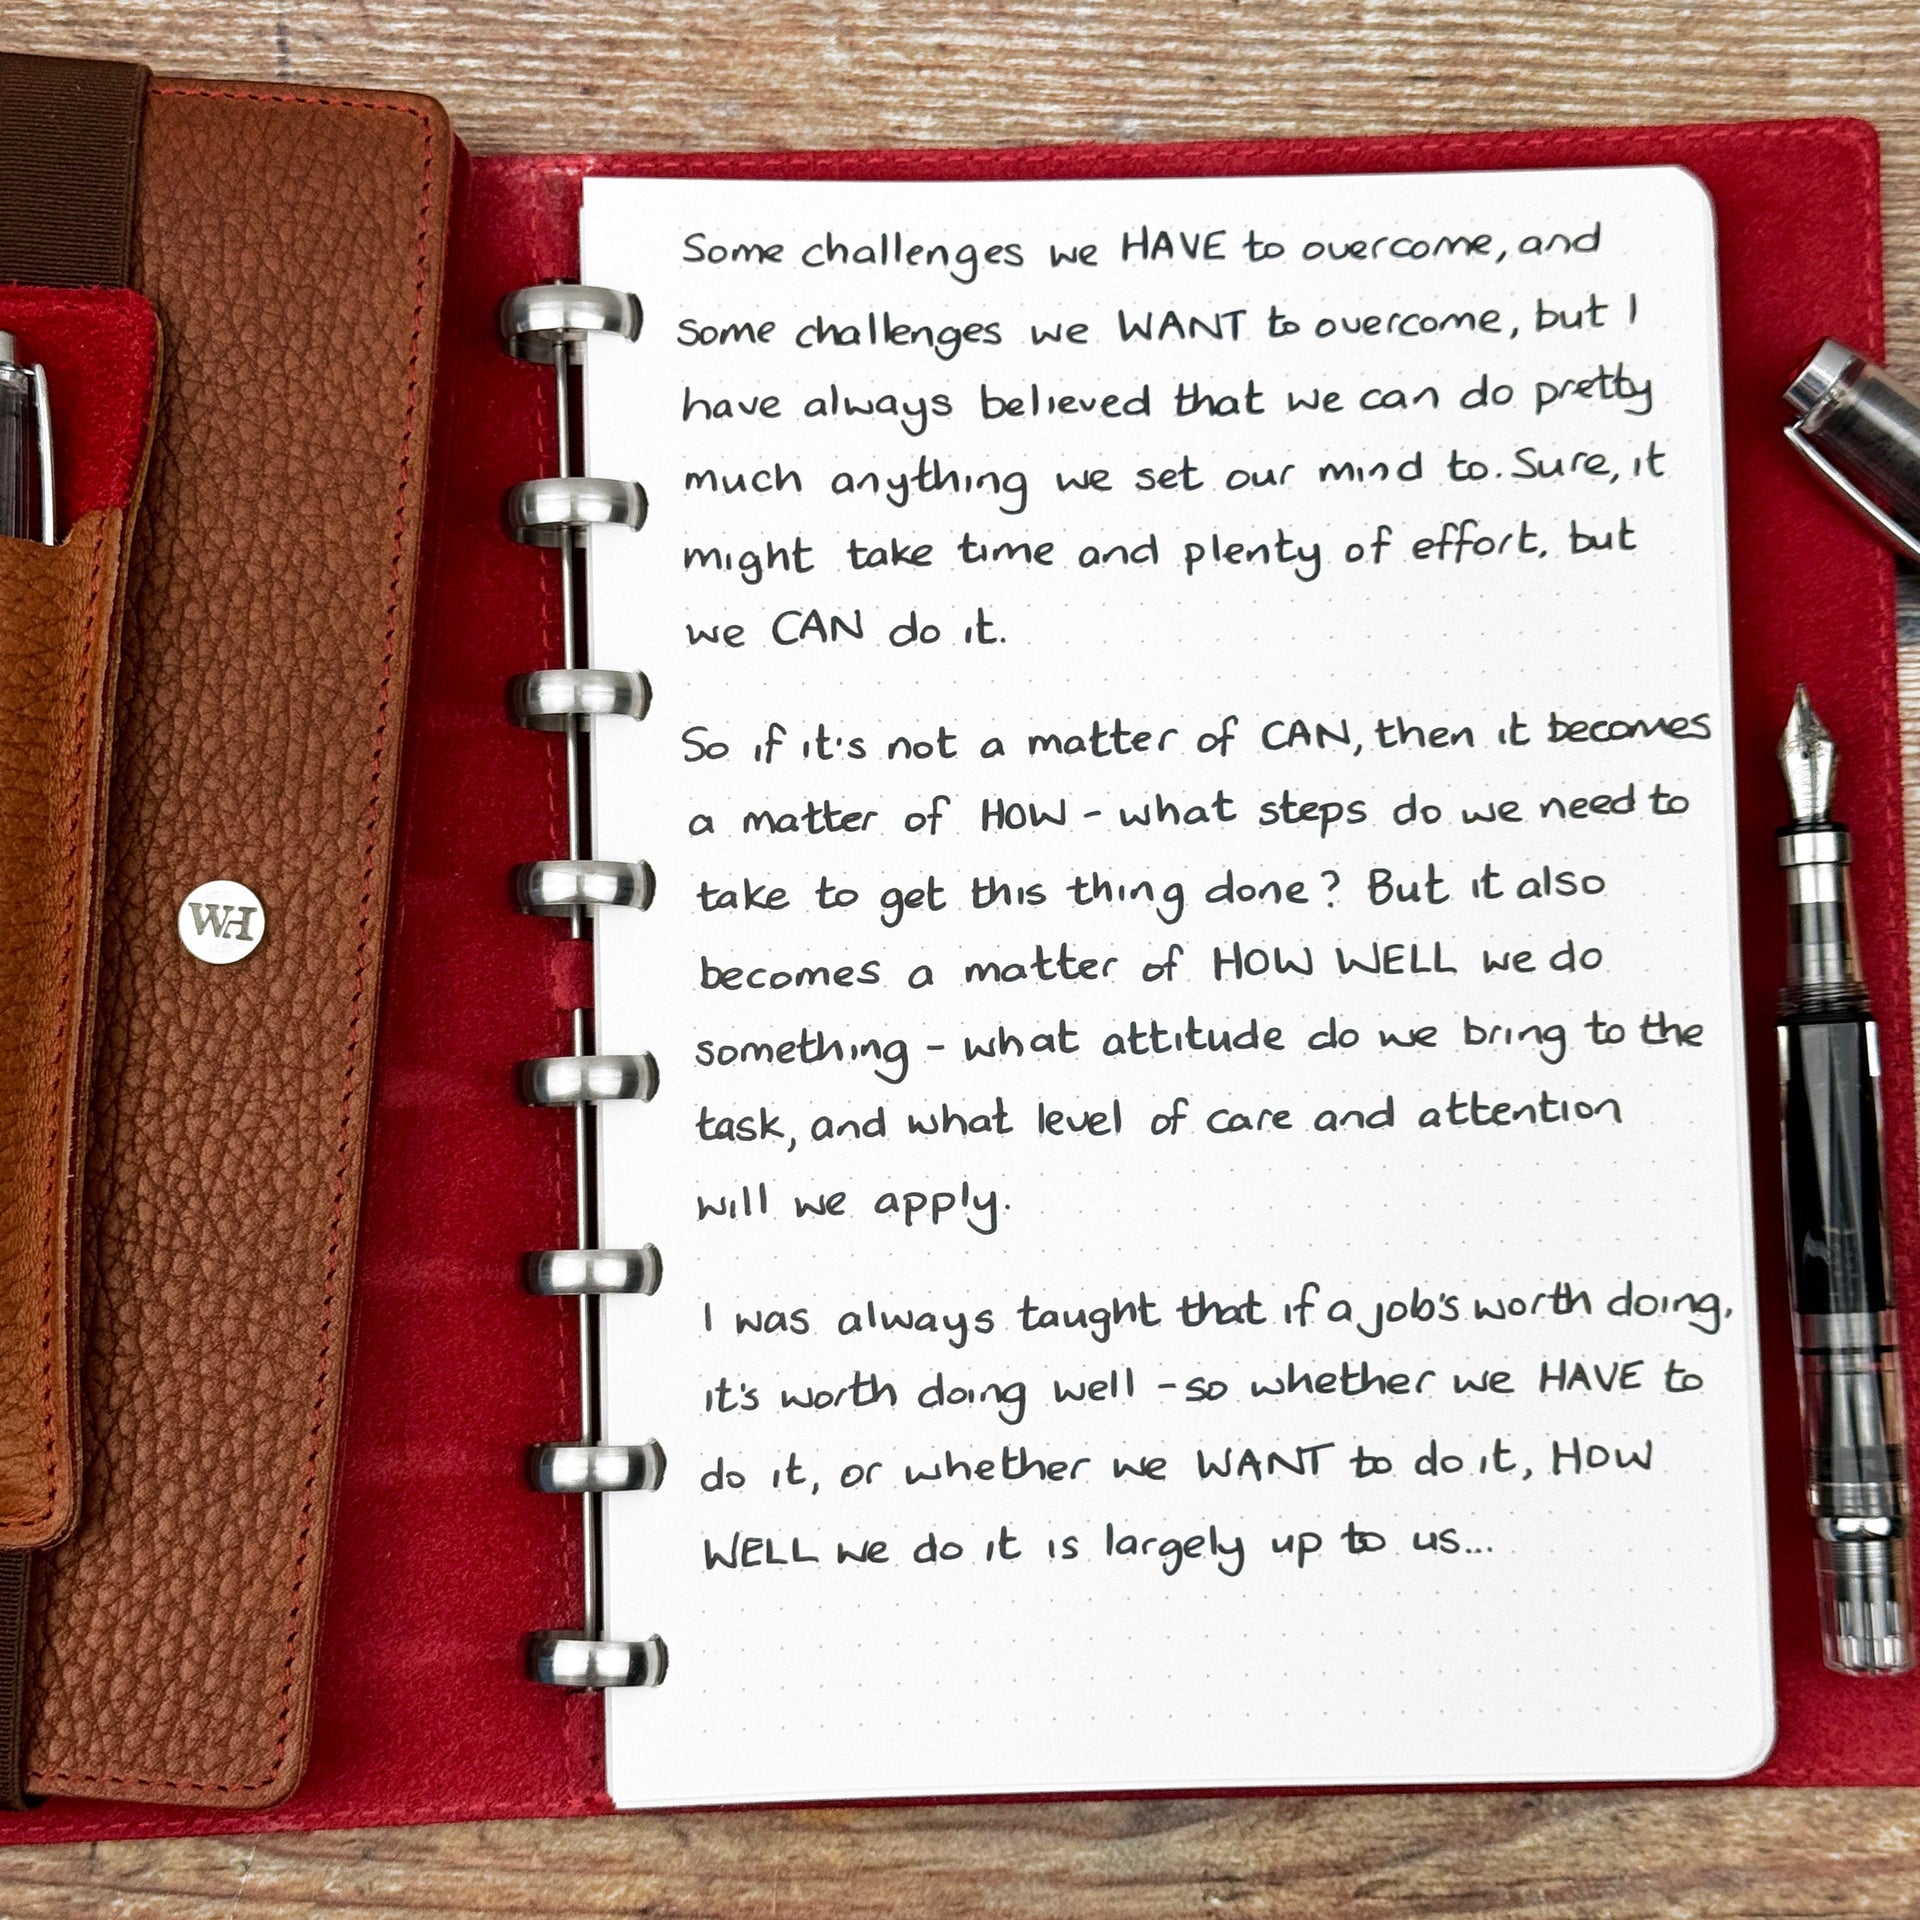 Some challenges we HAVE to overcome, and
some challenges we WANT to overcome, but I
have always believed that we can do pretty
much anything we set our mind to. Sure, it
might take time and plenty of effort, but
we CAN do it.
So if it's not a matter of CAN, then it becomes
a matter of HOW - what steps do we need to
take to get this thing done? But it also
becomes a matter of HOW WELL we do
something - what attitude do we bring to the
task, and what level of care and attention
will we apply.
I was always taught that if a job's worth doing,
it's worth doing well - so whether we HAVE to
do it, or whether we WANT to do it, HOW
WELL we do it is largely up to us...
WH